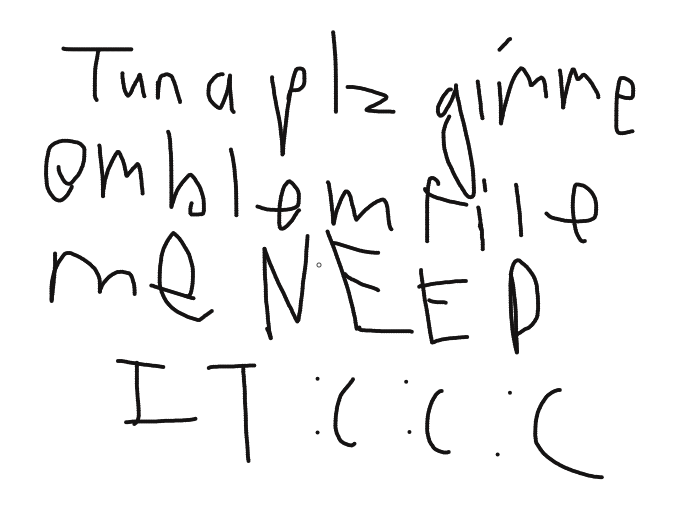 Tuna plz gimme
emblem file
me NEED
IT :( :( :(